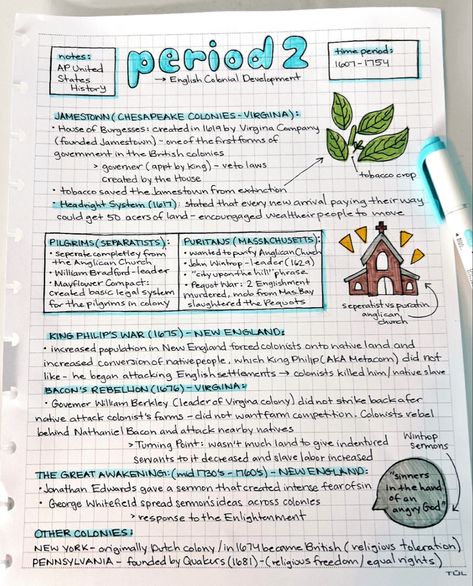 notes:
AP United
States
History
period 2
→ English Colonial Development
time period:
1607-1754
JAMESTOWN (CHESAPEAKE COLONIES - VIRGINIA):
• House of Burgesses: created in 1619 by Virginia Company
(founded Jamestown) - one of the first forms of
government in the British colonies
> governer (appt by king) - veto laws
created by the House
• tobacco saved the Jamestown from extinction
tobacco crop
• Headright System (1617): stated that every new arrival paying their way
could get 50 acers of land - encouraged wealtheir people to move
PILGRIMS (SEPARATISTS):
• seperate completley from
the Anglican Church
• William Bradford - leader
• Mayflower Compact:
created basic legal system
for the pilgrims in colony
PURITANS (MASSACHUSETTS):
• wanted to purify Anglican Church
• John Wintrop - leader (1629)
• "city upon the hill" phrase
• Pequot War: 2 Englishment
murdered, mob from Mas. Bay
slaughtered the Pequots
seperatist vs puratin
anglican
church
KING PHILIP'S WAR (1675) - NEW ENGLAND:
• increased population in New England forced colonists onto native land and
increased conversion of native people, which King Philip (AKA Metacom) did not
like - he began attacking English settlements → colonists killed him/native slave
BACON'S REBELLION (1676) - VIRGINIA:
• Governer William Berkley (leader of Virginia colony) did not strike back afer
native attack colonist's farms - did not want farm competition. Colonists rebel
behind Nathaniel Bacon and attack nearby natives
> Turning Point: wasn't much land to give indentured
servants to it decreased and slave labor increased
Wintrop
sermons
THE GREAT AWAKENING: (mid 1730's - 1760's) - NEW ENGLAND:
• Jonathan Edwards gave a sermon that created intense fear of sin
• George Whitefield spread sermons ideas across colonies
> response to the Enlightenment
"sinners
in the hand
of an
angry God"
OTHER COLONIES:
NEW YORK - originally Dutch colony / in 1674 became British (religious toleration)
PENNSYLVANIA - founded by Quakers (1681) - (religious freedom / equal rights)
TUL